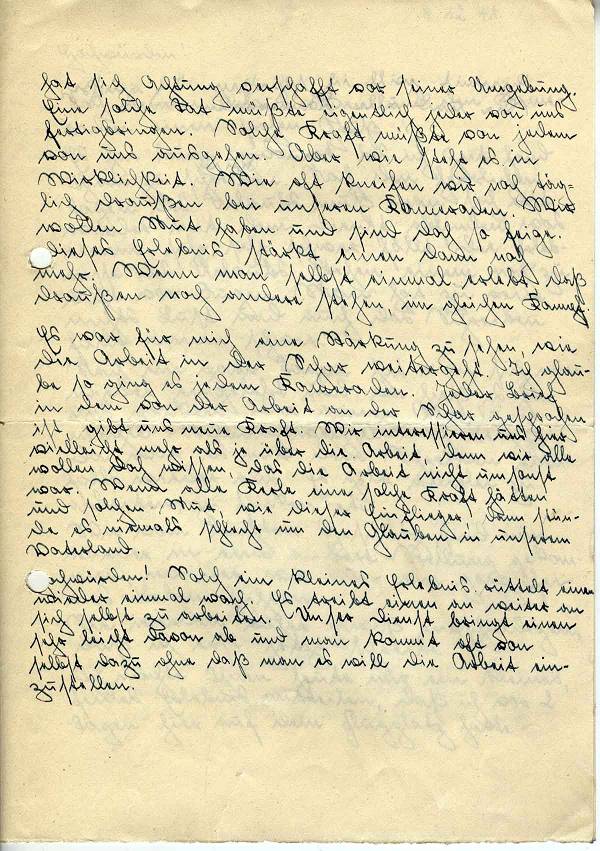 hat sich Achtung verschafft vor seiner Umgebung.
Eine solche Tat müßte eigentlich jeder von uns
fertigbringen. Solche Kraft müßte von jedem
von uns ausgehen. Aber wie steht es in
Wirklichkeit. Wie oft kneifen wir noch täg-
lich draußen bei unseren Kameraden. Wir
wollen Mut haben und sind doch so feige.
Dieses Erlebnis stärkt einen dann noch
mehr. Wenn man selbst einmal erlebt daß
draußen noch andere stehen im gleichen Kampf.
Es war für mich eine Stärkung zu sehen, wie
die Arbeit in der Schar weitergeht. Ich glau-
be so ging es jedem Kameraden. Jeder Brief
in dem von der Arbeit an der Schar gesprochen
ist gibt uns neue Kraft. Wir interessieren uns hier
vielleicht mehr als je über die Arbeit, denn wir alle
wollen doch wissen, das die Arbeit nicht umsonst
war. Wenn alle Kerle eine solche Kraft hätten
und solchen Mut, wie dieser Flieger, dann stün-
de es niemals schlecht um den Glauben in unserem
Vaterland.
Hochwürden! Solch ein kleines Erlebnis rüttelt einen
wieder einmal wach. Es treibt einen an weiter an
sich selbst zu arbeiten. Unser Dienst bringt einen
sehr leicht davon ab und man kommt oft von
selbst dazu ohne daß man es will die Arbeit ein-
zustellen.